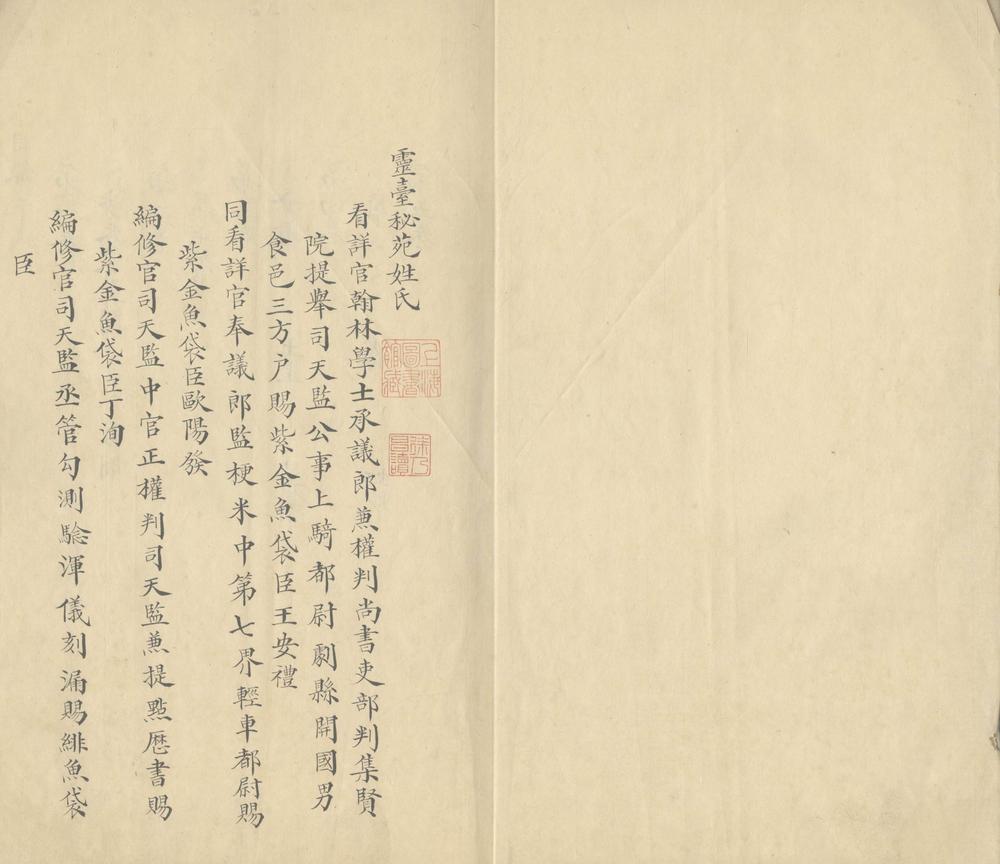 靈臺秘苑姓氏
看詳官翰林學士承議郎兼權判尚書吏部判集賢
院提舉司天監公事上騎都尉劇縣開國男
食邑三方户賜紫金魚袋臣王安禮
同看詳官奉議郎監梗米中第七界輕車都尉賜
紫金魚袋臣歐陽發
編修官司天監中官正權判司天監兼提點歷書賜
紫金魚袋臣丁洵
編修官司天監丞管勾測驗渾儀刻漏賜緋魚袋
臣
上海圖書館藏